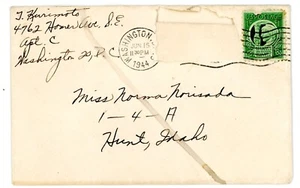 T. Kurimoto
4762 Homer Ave. S.E.
Apt C
Washington 20, D.C.
WASHINGTON
1944
Miss Norma Norisada
1-4-A
Hunt, Idaho